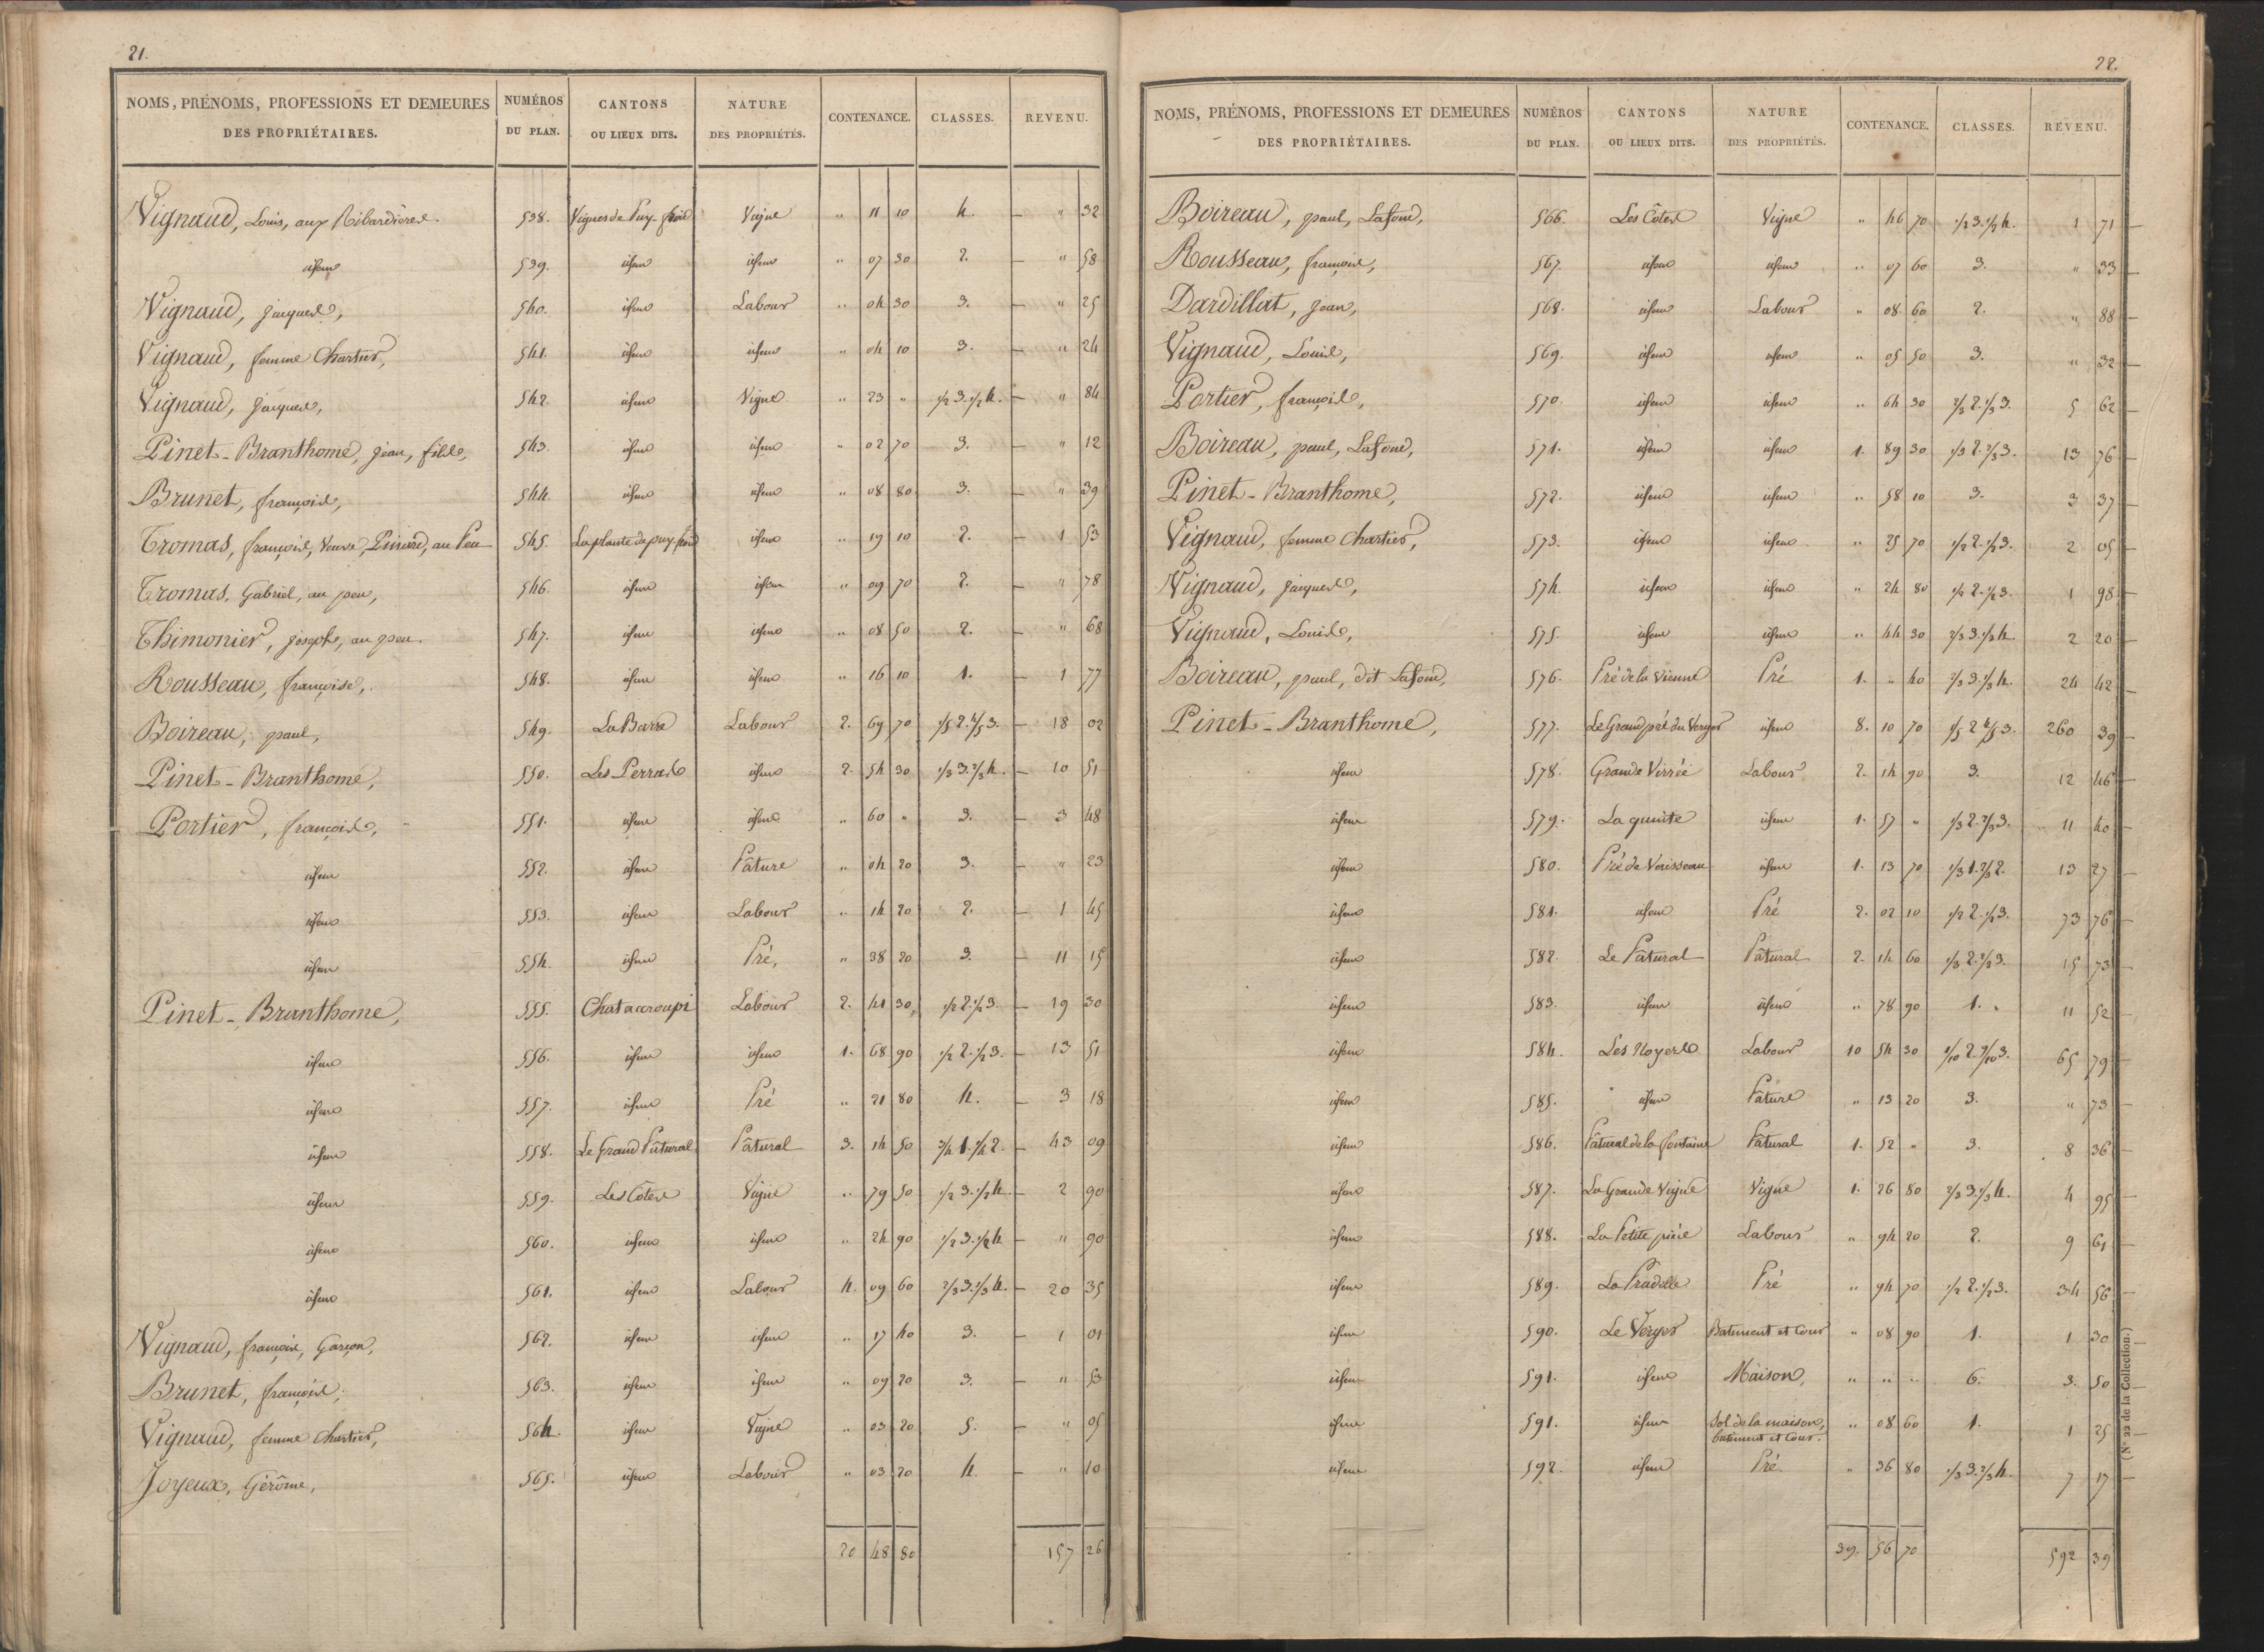 21.
NOMS, PRÉNOMS, PROFESSIONS ET DEMEURES DES PROPRIÉTAIRES. NUMÉROS DU PLAN. CANTONS OU LIEUX DITS. NATURE DES PROPRIÉTÉS. CONTENANCE. CLASSES. REVENU.
Vignaud, Louis, aux Ribardières. 538. Vignes de Puy-froid Vigne " 11 10 4. — " 32
idem 539. idem idem " 07 30 2. — " 58
Vignaud, Jacques, 540. idem Labour " 04 30 3. — " 25
Vignaud, femme Chartier, 541. idem idem " 04 10 3. — " 24
Vignaud, Jacques, 542. idem Vigne " 23 " 1/2 3. 1/2 4. — " 84
Pinet-Branthome, Jean, fils, 543. idem idem " 02 70 3. — " 12
Brunet, françois, 544. idem idem " 08 80 3. — " 39
Tromas, françois, Veuve, Pinard, au Peu 545. La plante de puy froid idem " 19 10 2. — 1 53
Tromas, Gabriel, au peu, 546. idem idem " 09 70 2. — " 78
Thimonier, Joseph, au peu. 547. idem idem " 08 50 2. — " 68
Rousseau, françoise, 548. idem idem " 16 10 1. — 1 77
Boireau, paul, 549. La Barre Labour 2. 69 70 1/5 2. 4/5 3. — 18 02
Pinet-Branthome, 550. Les Perrail idem 2. 54 30 1/3 3. 2/3 4. — 10 51
Portier, françois, 551. idem idem " 60 " 3. — 3 48
idem 552. idem Pâture " 04 20 3. — " 23
idem 553. idem Labour " 14 20 2. — 1 45
idem 554. idem Pré, " 38 20 3. — 11 15
Pinet-Branthome, 555. Chat accroupi Labour 2. 41 30 1/2 2. 1/2 3. — 19 30
idem 556. idem idem 1. 68 90 1/2 2. 1/2 3. — 13 51
idem 557. idem Pré " 21 80 4. — 3 18
idem 558. Le Grand Pâtural Pâtural 3. 14 50 3/4 1. 1/4 2. — 43 09
idem 559. Les Côtes Vigne " 79 50 1/2 3. 1/2 4. — 2 90
idem 560. idem idem " 24 90 1/2 3. 1/2 4 — " 90
idem 561. idem Labour 4. 09 60 2/3 3. 1/3 4. — 20 35
Vignaud, françois, Garçon, 562. idem idem " 17 40 3. — 1 01
Brunet, françois, 563. idem idem " 09 20 3. — " 53
Vignaud, femme Chartier, 564. idem Vigne " 03 20 5. — " 05
Joyeux, Gérôme, 565. idem Labour " 03 20 4. — " 10
20 48 80 157 26
22.
NOMS, PRÉNOMS, PROFESSIONS ET DEMEURES DES PROPRIÉTAIRES. NUMÉROS DU PLAN. CANTONS OU LIEUX DITS. NATURE DES PROPRIÉTÉS. CONTENANCE. CLASSES. REVENU.
Boireau, paul, Lafond, 566. Les Côtes Vigne " 46 70 1/2 3. 1/2 4. 1 71
Rousseau, françois, 567. idem idem " 07 60 3. " 33
Dardillat, Jean, 568. idem Labour " 08 60 2. " 88
Vignaud, Louis, 569. idem idem " 05 50 3. " 32
Portier, françois, 570. idem idem " 64 30 2/3 2. 1/3 3. 5 62
Boireau, paul, Lafond, 571. idem idem 1. 89 30 1/3 2. 2/3 3. 13 76
Pinet-Branthome, 572. idem idem " 58 10 3. 3 37
Vignaud, femme Chartier, 573. idem idem " 25 70 1/2 2. 1/2 3. 2 05
Vignaud, Jacques, 574. idem idem " 24 80 1/2 2. 1/2 3. 1 98
Vignaud, Louis, 575. idem idem " 44 30 2/3 3. 1/3 4. 2 20
Boireau, paul, dit Lafond, 576. Pré de la Vienne Pré 1. " 40 2/3 3. 1/3 4. 24 42
Pinet-Branthome, 577. Le Grand pré du Verger idem 8. 10 70 1/5 2 4/5 3. 260 39
idem 578. Grande Virrée Labour 2. 14 90 3. 12 46
idem 579. La quinte idem 1. 57 " 1/3 2. 2/3 3. 11 40
idem 580. Pré de Voisseau idem 1. 13 70 1/3 1. 2/3 2. 13 27
idem 581. idem Pré 2. 02 10 1/2 2. 1/2 3. 73 76
idem 582. Le Pâtural Pâtural 2. 14 60 1/3 2. 2/3 3. 15 73
idem 583. idem idem " 78 90 1. 11 52
idem 584. Les Noyers Labour 10 54 30 1/10 2. 9/10 3. 65 79
idem 585. idem Pâture " 13 20 3. " 73
idem 586. Pâtural de la fontaine Pâtural 1. 52 " 3. 8 36
idem 587. La Grande Vigne Vigne 1. 26 80 2/3 3. 1/3 4. 4 95
idem 588. La Petite Labour " 94 20 2. 9 61
idem 589. La Pradelle Pré " 94 70 1/2 2. 1/2 3. 34 56
idem 590. Le Verger Batiment et Cour " 08 90 1. 1 30
idem 591. idem Maison, " " " 6. 3. 50
idem 591. idem Sol de la maison, batiment et Cour. " 08 60 1. 1 25
idem 592. idem Pré. " 36 80 1/3 3. 2/3 4. 7 17
39. 56 70 592 39
(N° 22 de la Collection.)